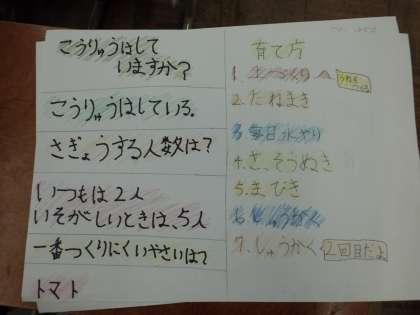 こうりゅうはして
いますか?
こうりゅうはしている。
さぎょうする人数は?
いつもは2人
いそがしいときは、5人
一番つくりにくいやさいは?
トマト
育て方
1.
2.たねまき
3.毎日水やり
4.ざっそうぬき
5.まびき
6.しゅうかく
7.しゅうかく 2回目だよ